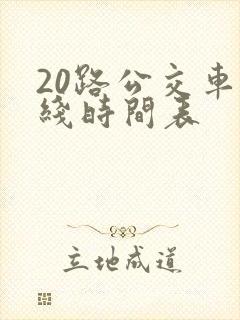 20路公交車
綫時間表
立地成道